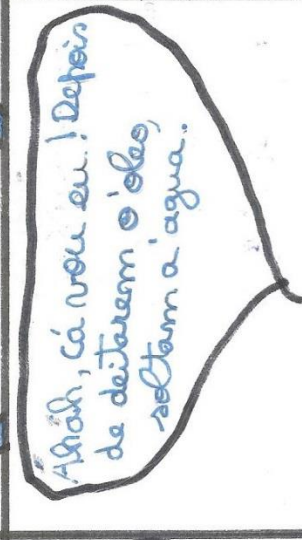 Ahah, cá vou eu! Depois
de deitarem o óleo,
soltam a água.